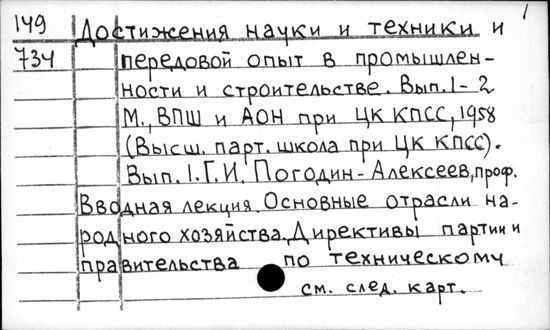 149 Достижения науки и техники и 1
734 передовой опыт в промышлен-
ности и строительстве. Вып.1-2
М., ВПШ и АОН при ЦК КПСС, 1958
(Высш. парт. школа при ЦК КПСС).
Вып. 1. Г.И. Погодин-Алексеев, проф.
Вводная лекция. Основные отрасли на-
родного хозяйства. Директивы партии и
правительства по техническому
см. след. карт.